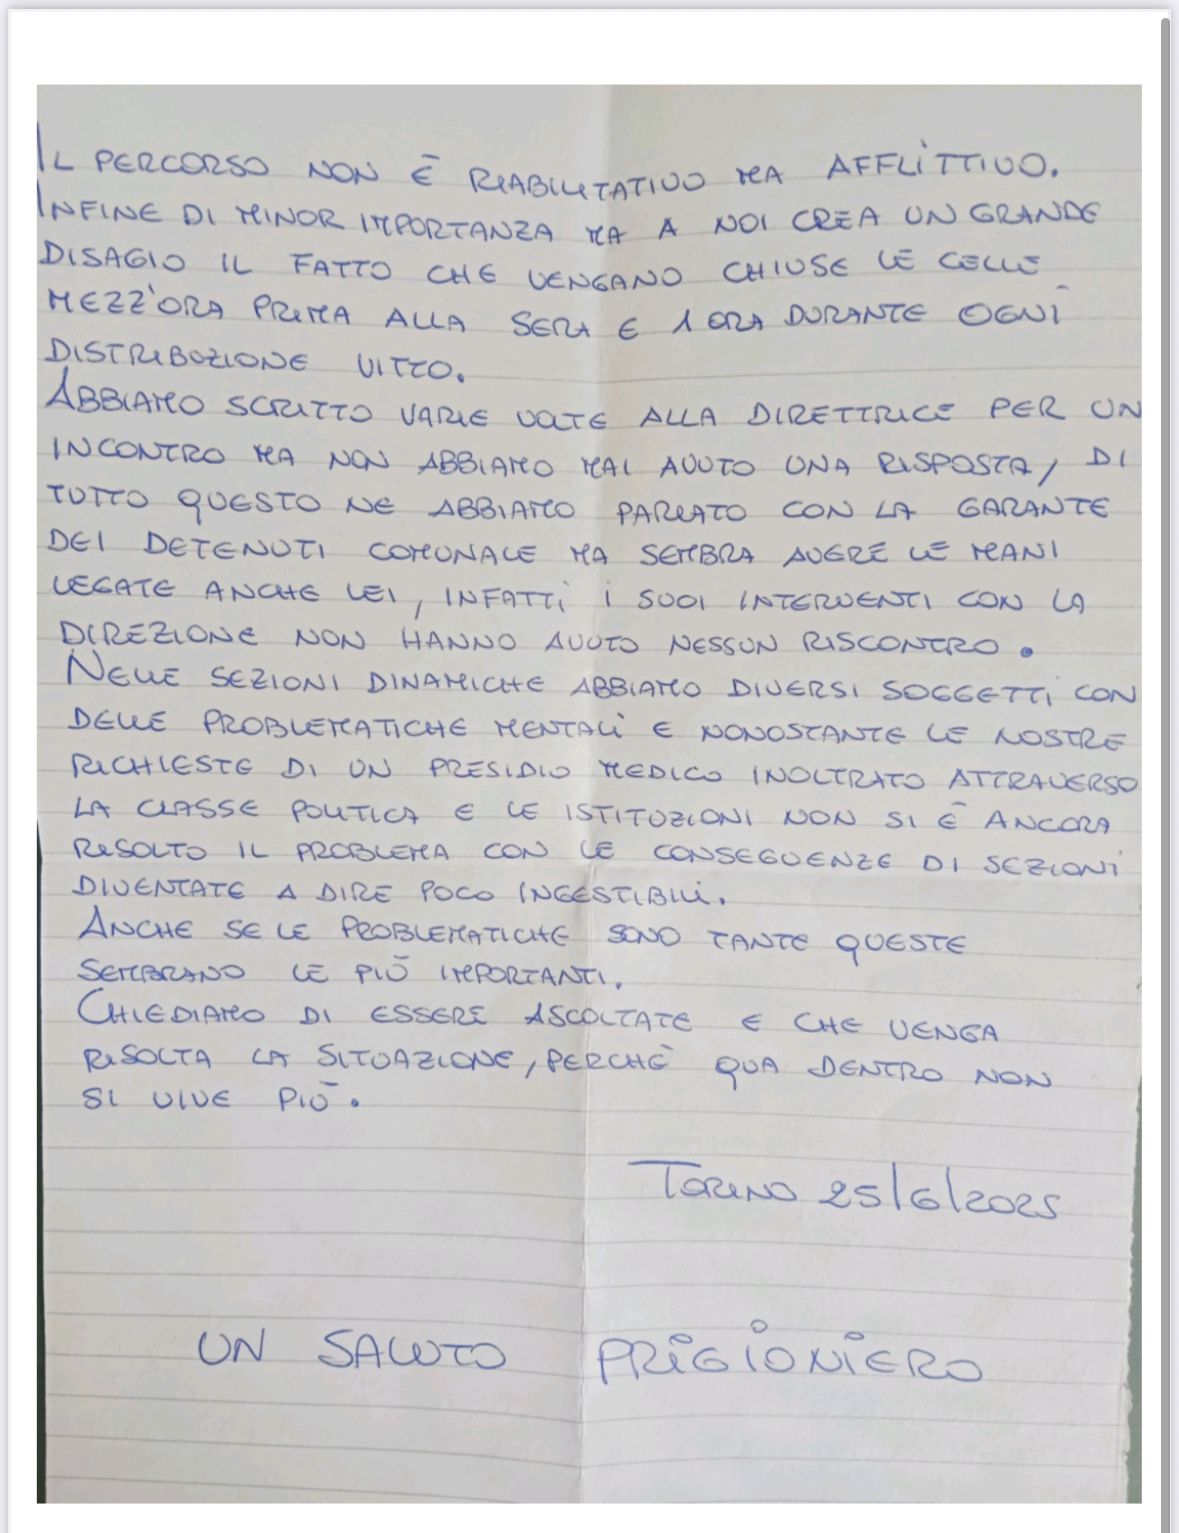 IL PERCORSO NON È RIABILITATIVO MA AFFLITTIVO.
INFINE DI MINOR IMPORTANZA MA A NOI CREA UN GRANDE
DISAGIO IL FATTO CHE VENGANO CHIUSE LE CELLE
MEZZ'ORA PRIMA ALLA SERA E 1 ORA DURANTE OGNI
DISTRIBUZIONE VITTO.
ABBIAMO SCRITTO VARIE VOLTE ALLA DIRETTRICE PER UN
INCONTRO MA NON ABBIAMO MAI AVUTO UNA RISPOSTA, DI
TUTTO QUESTO NE ABBIAMO PARLATO CON LA GARANTE
DEI DETENUTI COMUNALE MA SEMBRA AVERE LE MANI
LEGATE ANCHE LEI, INFATTI I SUOI INTERVENTI CON LA
DIREZIONE NON HANNO AVUTO NESSUN RISCONTRO.
NELLE SEZIONI DINAMICHE ABBIAMO DIVERSI SOGGETTI CON
DELLE PROBLEMATICHE MENTALI E NONOSTANTE LE NOSTRE
RICHIESTE DI UN PRESIDIO MEDICO INOLTRATO ATTRAVERSO
LA CLASSE POLITICA E LE ISTITUZIONI NON SI È ANCORA
RISOLTO IL PROBLEMA CON LE CONSEGUENZE DI SEZIONI
DIVENTATE A DIRE POCO INGESTIBILI.
ANCHE SE LE PROBLEMATICHE SONO TANTE QUESTE
SEMBRANO LE PIÙ IMPORTANTI.
CHIEDIAMO DI ESSERE ASCOLTATE E CHE VENGA
RISOLTA LA SITUAZIONE, PERCHÈ QUA DENTRO NON
SI VIVE PIÙ.
TORINO 25/6/2025
UN SALUTO PRIGIONIERO